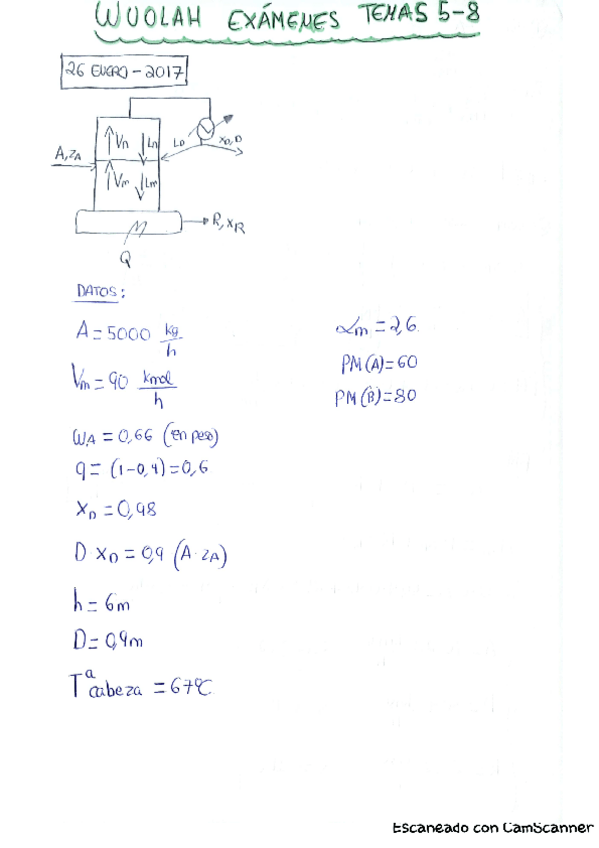 WUOLAH EXÁMENES TEMAS 5-8
26 ENERO - 2017
Vn Ln LD xD, D
A, zA
Vm Lm
R, xR
Q
DATOS:
A = 5000 kg/h
αm = 2,6
PM(A) = 60
Vm = 90 kmol/h
PM(B) = 80
ωA = 0,66 (en peso)
q = (1-0,4) = 0,6
xD = 0,98
D · xD = 0,9 (A · zA)
h = 6m
D = 0,9m
Tª cabeza = 67ºC
Escaneado con CamScanner